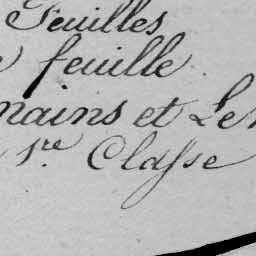 Feuilles
feuille
mains et Le
1.re Classe